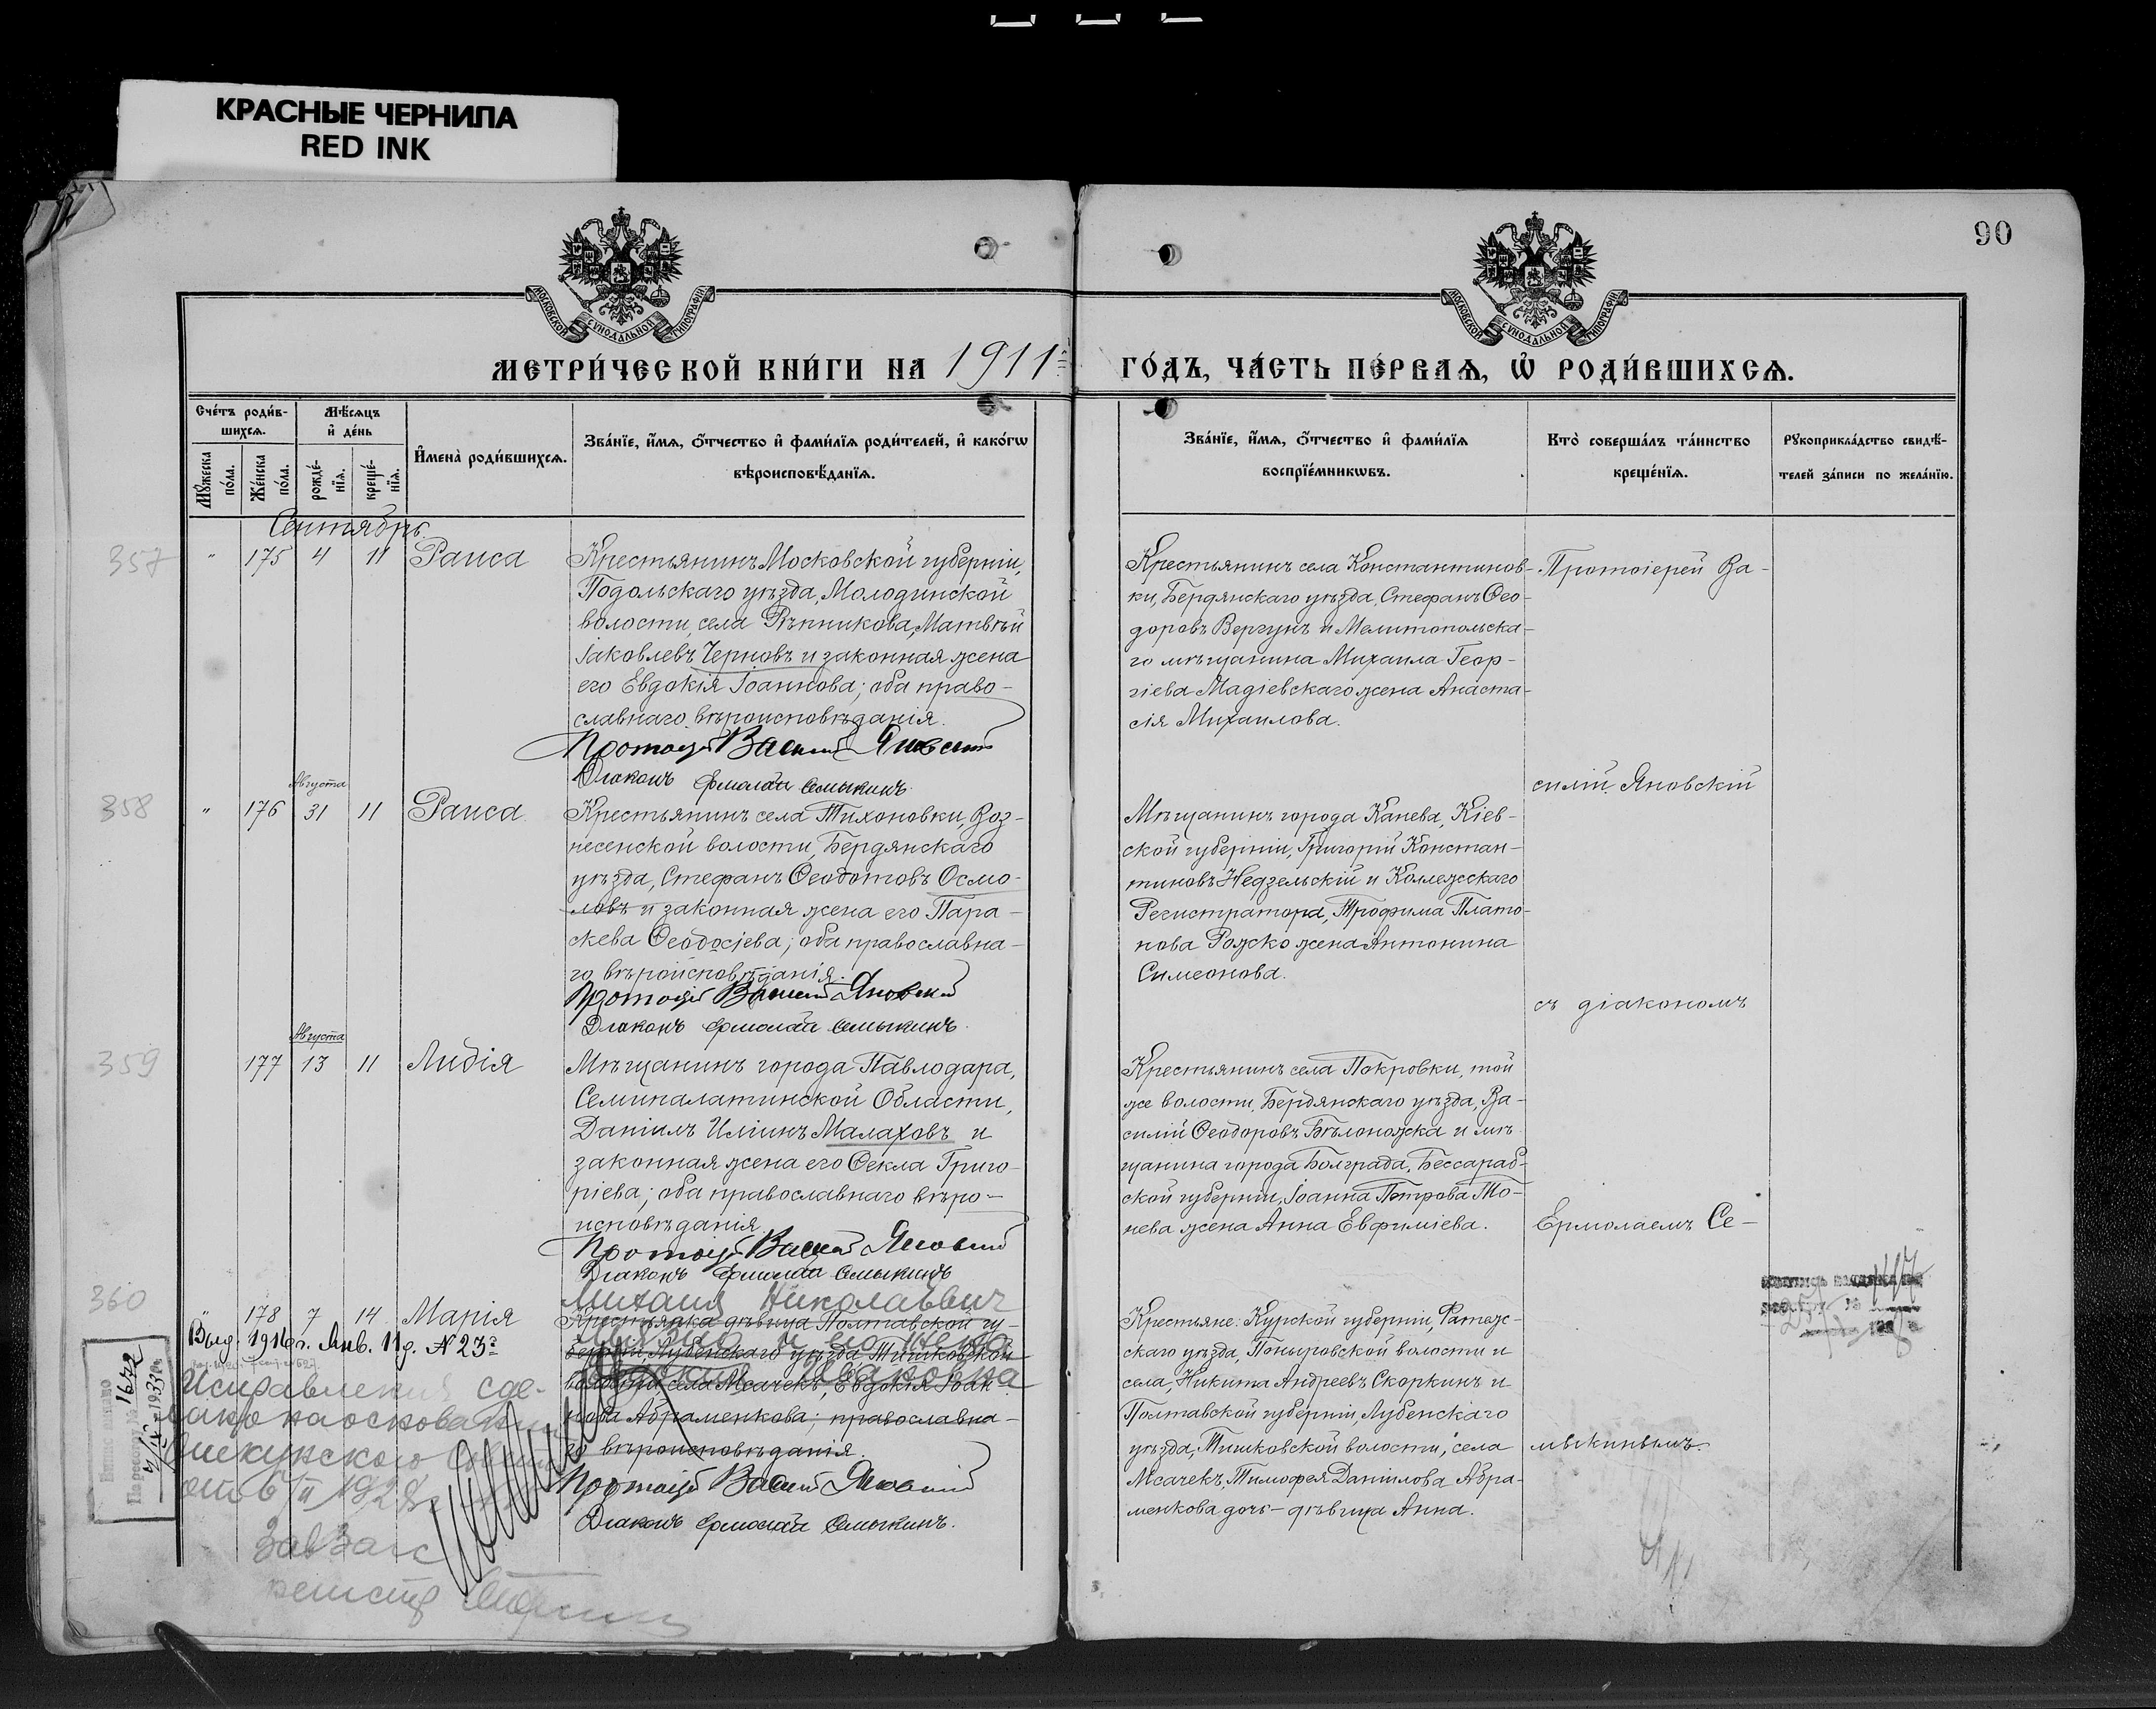 КРАСНЫЕ ЧЕРНИЛА
RED INK
90
МОСКОВСКОЙ СѴНОДАЛЬНОЙ ТИПОГРАФІИ
МОСКОВСКОЙ СѴНОДАЛЬНОЙ ТИПОГРАФІИ
МЕТРИ́ЧЕСКОЙ КНИ́ГИ НА 1911 ГО́ДЪ, ЧА́СТЬ ПЕ́РВАѦ, Ѽ РОДИ́ВШИХСѦ.
Сче́тъ роди́в-
шихсѧ.
Мѣ́сѧцъ
и҆ де́нь
И҆мена̀ роди́вшихсѧ.
Зва́нїе, и҆́мѧ, ѻ҆́тчество и҆ фами́лїѧ роди́телей, и҆ како́гѡ
вѣроисповѣ́данїѧ.
Зва́нїе, и҆́мѧ, ѻ҆́тчество и҆ фами́лїѧ
воспрїе́мникѡвъ.
Кто̀ соверша́лъ та́инство
креще́нїѧ.
Рꙋкоприкла́дство свидѣ́-
телей за́писи по жела́нїю.
Мꙋ́жеска
по́ла.
Же́нска
по́ла.
рожде́-
нїѧ.
креще́-
нїѧ.
Сентябрь.
357
" 175 4 11 Раиса
Крестьянинъ Московской губерніи,
Подольскаго уѣзда, Молодинской
волости, села Рѣпникова, Матвѣй
Іаковлевъ Черновъ и законная жена
его Евдокія Іоаннова; оба право-
славнаго вѣроисповѣданія.
Протоіерей Василій Яновскій
Діаконъ Ермолай Семыкинъ.
Крестьянинъ села Константинов-
ки, Бердянскаго уѣзда, Стефанъ Ѳео-
доровъ Вергунъ и Мелитопольска-
го мѣщанина Михаила Геор-
гіева Мадіевскаго жена Анаста-
сія Михаилова.
Протоіерей Ва-
силій Яновскій
358
Августа
" 176 31 11 Раиса
Крестьянинъ села Тихоновки, Воз-
несенской волости, Бердянскаго
уѣзда, Стефанъ Ѳеодотовъ Осмо-
ловъ и законная жена его Пара-
скева Ѳеодосіева; оба православна-
го вѣроисповѣданія.
Протоіерей Василій Яновскій
Діаконъ Ермолай Семыкинъ.
Мѣщанинъ города Канева, Кіев-
ской губерніи, Григорій Констан-
тиновъ Недзельскій и Коллежскаго
Регистратора, Трофима Плато-
нова Рожско жена Антонина
Симеонова.
съ діакономъ
359
Августа
177 13 11 Лидія
Мѣщанинъ города Павлодара,
Семипалатинской Области,
Даніилъ Иліинъ Малаховъ и
законная жена его Ѳекла Григо-
ріева; оба православнаго вѣро-
исповѣданія
Протоіерей Василій Яновскій
Діаконъ Ермолай Семыкинъ
Крестьянинъ села Покровки, той
же волости, Бердянскаго уѣзда, Ва-
силій Ѳеодоровъ Бѣлоножка и мѣ-
щанина города Болграда, Бессараб-
ской губерніи, Іоанна Петрова То-
нева жена Анна Евфиміева.
Ермолаемъ Се-
360
" 178 7 14 Марія
Михаил Николаевич
и его жена
Ивановна
Крестьянка дѣвица Полтавской гу-
берніи, Лубенскаго уѣзда Тишковской
волости, села Мсачекъ, Евдокія Іоан-
нова Абраменкова; православна-
го вѣроисповѣданія.
Протоіерей Василій Яновскій
Діаконъ Ермолай Семыкинъ.
Крестьяне: Курской губерніи, Фатеж-
скаго уѣзда, Поныровской волости и
села, Никита Андреевъ Скоркинъ и
Полтавской губерніи, Лубенскаго
уѣзда, Тишковской волости, села
Мсачекъ, Тимофея Даніилова Абра-
менкова дочь - дѣвица Анна.
мыкинымъ.
Выд. 1916 г. Янв. 11 д. № 23
Исправления сде-
лано на основании
Опекунского Совета
от 6/II 1928
ЗавЗагс
1672
1933 г.